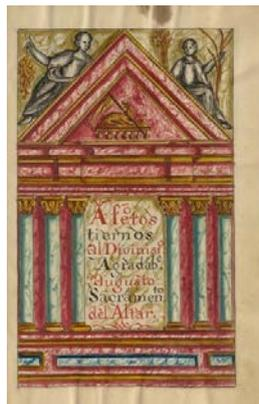 Afectos
tiernos
al Divinis.º
Agradab.e
Augusto
Sacramen.to
del Altar.